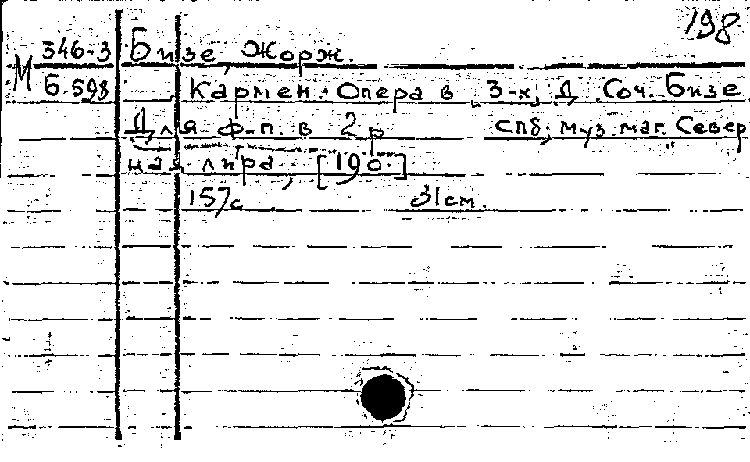 198
М 346-3 Бизе, Жорж.
Б-598 Кармен. Опера в 3-х д. Соч. Бизе
Для ф-п. в 2 р СПб, муз. маг. "Север
ная лира, [190.]
157с 31см.